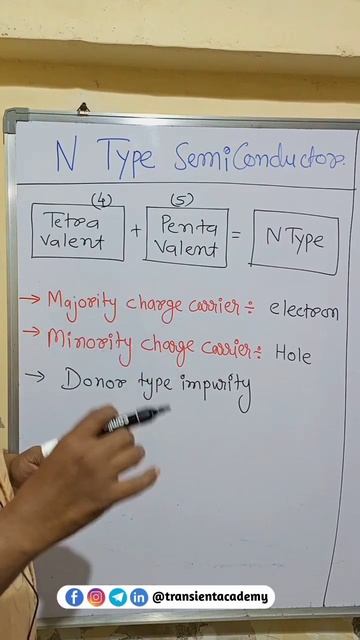 N Type SemiConductor
(4) (5)
Tetra Valent + Penta Valent = N Type
→ Majority charge carrier ÷ electron
→ Minority charge carrier ÷ Hole
→ Donor type impurity
@transientacademy